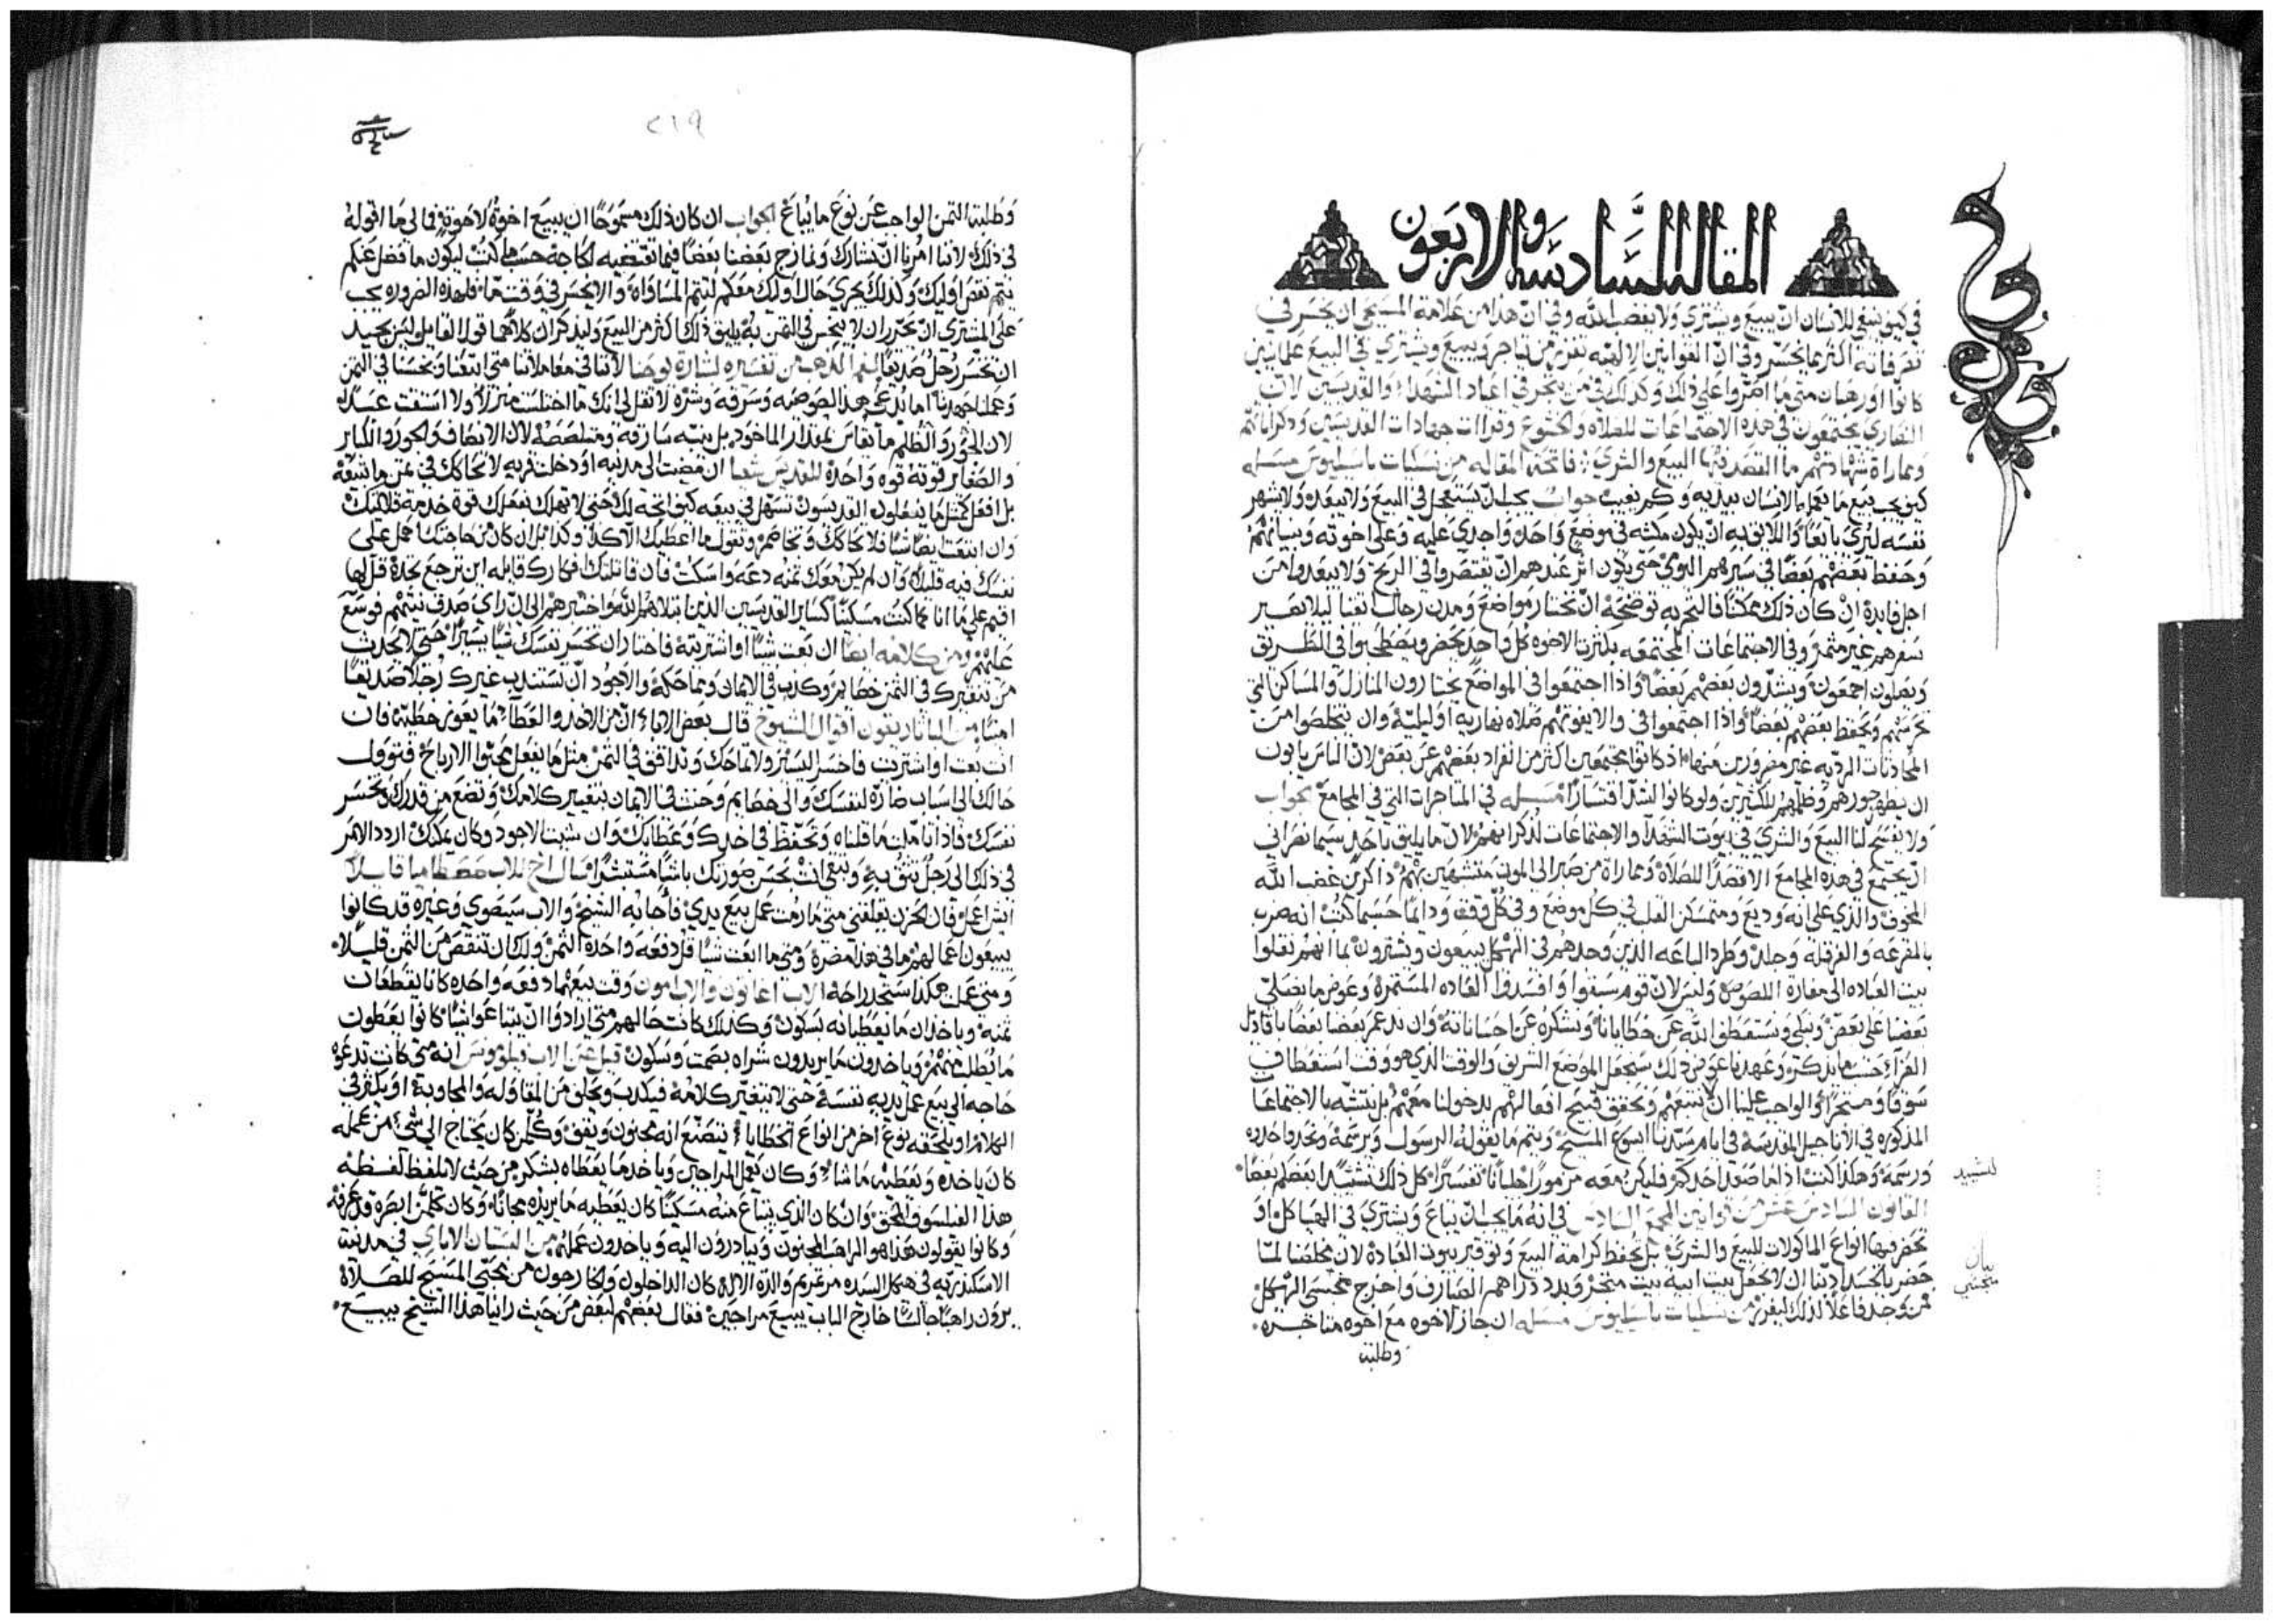 المقالة السادسة والاربعون
في كيف ينبغي للانسان ان يبيع ويشتري ولا يغضب الله وفي ان هذا من علامة المسيحي ان يخسر في
تصرفاته اكثر مما يخسر وفي ان القوانين الالهيه تفرز من يتاجر ويبيع ويشتري في البيع علمانيين
كانوا او رهبان متى ما اصروا على ذلك وكذلك في من يتجر في اعياد الشهداء والقديسين لان
النصارى يجتمعون في هذه الاجتماعات للصلاه والخشوع وقراات جهادات القديسين وذكراناتهم
ومماراة شهادتهم ما القصد فيها البيع والشرى فاتحة المقاله من نسكيات باسيليوس مسله
كيف يجب بيع ما يعمله الانسان بيديه وكم يغيب جواب يجب ان يستعجل في البيع ولا يبعد ولا يشهر
نفسه ليرى بائعا واللايق به ان يكون مكثه في موضع واحد واجدى عليه وعلى اخوته وبنيانهم
وحفظ بعضهم بعضا في سيرهم النوى حتى يكون اثر عندهم ان يقتصروا في الربح ولا يبعدوا من
اجل فايدة ان كان ذلك ممكنا فالتجربه توضحه ان تختار مواضع ومدن رجال اتقيا ليلا يصير
سفرهم غير مثمر وفي الاجتماعات المجتمعه بكثرت الاخوه كل واحد يحضر ويصطحبوا في الطريق
ويصلون اجمعون ويشدون بعضهم بعضا واذا اجتمعوا في المواضع يختارون المنازل والمساكن التي
تحرسهم ويحفظ بعضهم بعضا واذا اجتمعوا في والا يفوتهم صلاه نهاريه او ليليه وان يتخلصوا من
المحادثات الرديه غير مضرورين منها اذ كانوا مجتمعين اكثر من انفراد بعضهم عن بعض لان الناس يابون
ان يظهر جورهم وظلمهم للكثيرين ولو كانوا اشد اقتسارا مسله في المتاجرات التي في المجامع جواب
ولا يفسح لنا البيع والشرى في بيوت الشهدآ والاجتماعات لذكراهم لان ما يليق باحد سيما نصراني
ان يجتمع في هذه المجامع الا قصدا للصلاة ومماراة من صبر الى الموت متشبهين بهم ذاكرين غضب الله
المخوف والذي على انه وديع ومتمسكن القلب في كل موضع وفي كل وقت ودائما حسبما كتب انه ضرب
بالمقرعه والفرقله وجلد وطرد الباعه الذين وحدهم في الهيكل يبيعون ويشترون بما انهم نقلوا
بيت العباده الى مغارة اللصوص وليس لان قوم سبقوا وافسدوا العاده المستمرة وعوض ما نصلي
بعضنا على بعض ونبكي ونستعطف الله عن خطايانا ونشكره عن احساناته وان ندعم بعضنا بعضا باقاويل
سوقا ومتجرا والواجب علينا الا نتبعهم ونحقق قبح افعالهم بدخولنا معهم بل نتشبه بالاجتماعات
المذكوره في الاناجيل المقدسة في ايام سيدنا ايسوع المسيح ويتم ما يقوله الرسول ويرسمه
القانون السادس عشر من قوانين المجمع السادس في انه ما يجب ان يباع ويشترى في الهياكل او
تحضر فيها انواع الماكولات للبيع والشرى بل تحفظ كرامة البيع وتوقير بيوت العبادة لان مخلصنا لما
حضر بالجسد ادبنا ان لا نجعل بيت ابيه بيت متجر وبدد دراهم الصيارف واخرج منجسي الهيكل
فمن وجد فاعلا لذلك ليفرز من نسكيات باسيليوس مسله ان جاز لاخوه مع اخوه متاجره
وطلبت
بيان
منجسي
٢١٩
وطلبت الثمن الواجب عن نوع ما يباع الجواب ان كان ذلك مسموحا ان يبيع اخوة لاخوة فما لي ما اقوله
في ذلك لاننا امرنا ان نتشارك ونمازج بعضنا بعضا فيما تقتضيه الحاجة حسب ما كتب ليكون ما فضل عنكم
يتم نقص اوليك وكذلك يجري حال اوليك معكم لتتم المساواه والا نخسر في وقت ما فلهذه الضروره يجب
على المشتري ان يتحرر ان لا يبخس في الثمن به يليق ذلك اكثر من البيع وليذكران كلاهما قول القايل ليس بجيد
ان تخسر رجل صديقا لفم الذهب من تفسيره لبشارة يوحنا لاننا في معاملاتنا متى ابتعنا وبخسنا في الثمن
وعملنا جهدنا اما ندعى بهذا اللصوصيه وسرقه وشره لا تقل لي انك ما اختلست منزلا ولا استقت عبيدا
لان الجور والظلم ما يقاس بمقدار الماخود بل بنيه سارقه ومتلصصة لان الانصاف والجور والكبار
والصغار قوته قوه واحدة للقديس اشعيا ان مضيت الى مدينه او دخلت قريه لا تحاكك في ثمن ما تبيعه
بل افعل كمثل ما يفعلون القديسون تسهل في بيعه كيف اتجه لك حتى لا تهلك بعملك قوة خدمة قلايتك
وان ابتعت ايضا شيا فلا تحاكك وتخاصم وتقول ما اعطيك الا كذا وكذا بل ان كان من حاجتك احمل على
نفسك فيه قليلا وان لم يكن معك ثمنه دعه واسكت فان قاتلتك افكارك قايله اين ترجع تجده قل لها
عليهم ومن كلامه ايضا ان بعت شيا او اشتريته فاختار ان تخسر نفسك شيا يسيرا حتى لا تجذب
امينا من البانديقون اقوال الشيوخ قال بعض الاباء ان من الاخذ والعطآ ما يعوز خطيه فان
انت بعت او اشتريت فاخسر اليسير ولا تماحك وتدافق في الثمن مثل ما يفعل محبوا الارباح فتوول
حالك الى اسباب ضاره لنفسك والى خصايم وحنث في الايمان بتغيير كلامك وتضع من قدرك وتخسر
نفسك فاذا تاملت ما قلناه وتحفظ في اخدك وعطايك وان شيت الاجود وكان يمكنك اردد الامر
في ذلك الى رجل تثق به وتبقى انت بحسن صورتك باشا مستبشرا سال اخ للاب قايلا
ايش اعمل فان الحزن يعلقني متى ما رمت عمل بيع يدي فاجابه الشيخ والاب سيصوي وغيره قد كانوا
يبيعون اعمالهم وما في هذا مضرة ومتى ما ابعت شيا قل دفعه واحده الثمن ولك ان تنقص من الثمن قليلا
ومتى عملت هكذا ستجد راحة الاب اغاثون والاب امون وقت بيعهما دفعه واحده كانا يقطعان
ثمنه وياخذان ما يعطيانه بسكون وكذلك كانت حالهم متى ارادوا ان يبتاعوا شيا كانوا يعطون
ما يطلب منهم وياخدون ما يريدون شراه بصمت وسكون قيل عن الاب انه متى كانت تدعوه
حاجه الى بيع عمل يديه نفسه حتى لا يتغير كلامه فيكدب ويحلق من المقاوله والمجاوبة او يكثر في
الكلام او يلحقه نوع اخر من انواع الخطايا يتصنع انه مجنون ويقف وكلمن كان يحتاج الى شي من عمله
كان ياخده ويعطيه ما شاء وكان يعمل المراجين وياخد ما يعطاه بشكر من حيث لا يلفظ لفظه
هذا الفيلسوف المحق وان كان الذي يبتاع منه مسكينا كان يعطيه ما يريده مجانا وكان كلمن ابصره قد عرفه
وكانوا يقولون هذا هو الراهب المجنون ويبادرون اليه وياخدون عمله من البستان الاباي في مدينة
الاسكندريه في هيكل السيده مرتمريم والدة الاله كان الداخلون والخارجون من محبي المسيح للصلاة
يرون راهبا جالسا خارج الباب يبيع مراجين فقال بعضهم لبعض من حيث راينا هذا الشيخ يبيع